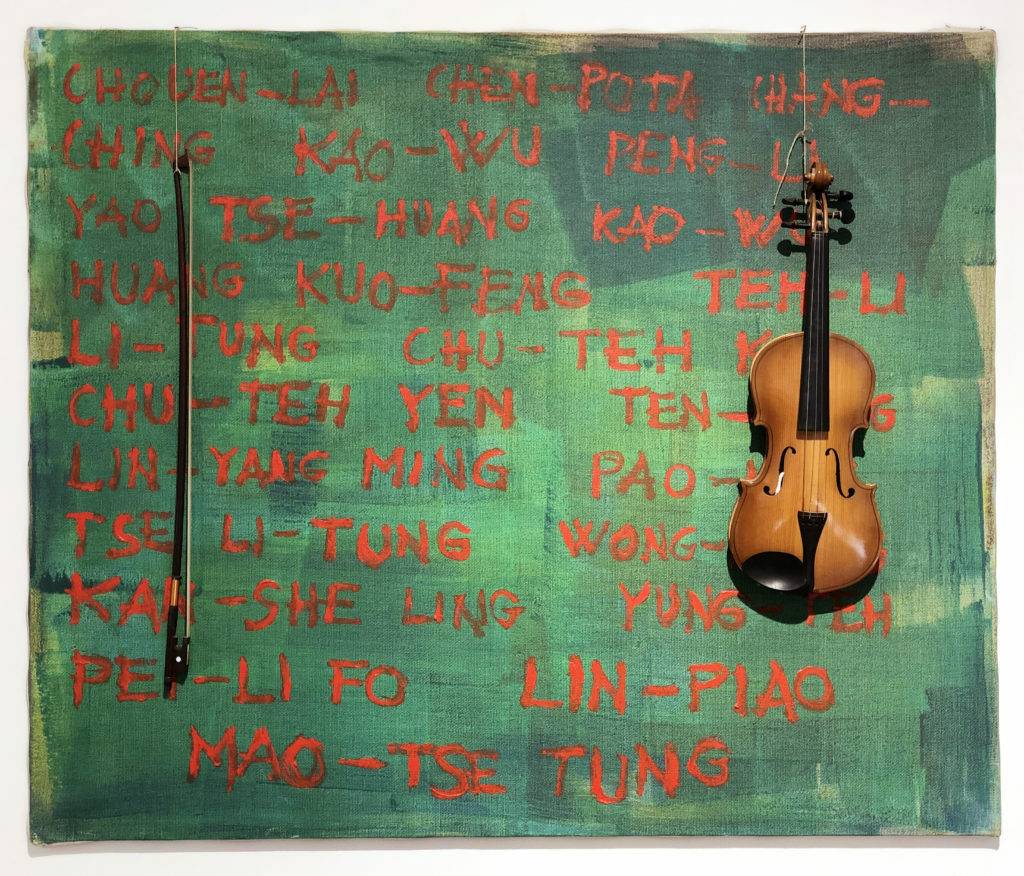 CHOUEN-LAI CHEN-POTA CHANG-
CHING KAO-WU PENG-
YAO TSE-HUANG KAO-
HUANG KUO-FENG TEH-LI
LI-TUNG CHU-TEH
CHU-TEH YEN TEN-
LIN-YANG MING PAO-
TSE LI-TUNG WONG-
KAN-SHE LING YUNG-TEH
PEI-LI FO LIN-PIAO
MAO-TSE TUNG